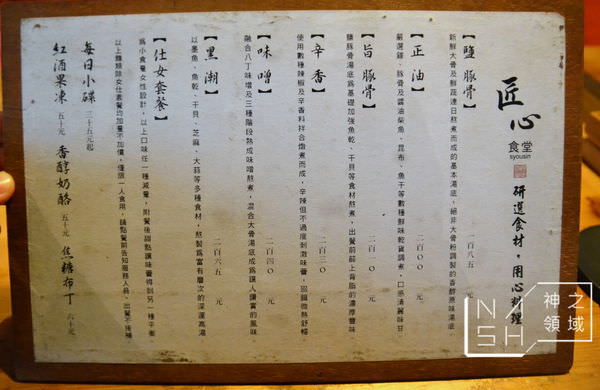 匠心
食堂
syousin
研選食材，用心料理
【鹽豚骨】 一百八五 元
新鮮大骨及鮮蔬連日熬煮而成的基本湯底，細非大骨粉調製的香醇原味湯底
【正油】 二百〇〇 元
嚴選雞、豚骨及醬油柴魚、昆布、魚干等數種鮮味乾貨調煮，口感清麗味甘
【旨豚骨】 二百一〇 元
鹽豚骨湯底為基礎加強魚乾、干貝等食材熬煮，出餐前鋪上背脂的濃厚豐味
【辛香】 二百三〇 元
使用數種辣椒及辛香料拌合燉煮而成，辛辣但不過度刺激味蕾，回韻微熱舒暢
【味噌】 二百四〇 元
融合八丁味噌及三種階段熟成味噌熬煮，混合大骨湯底成為讓人讚賞的風味
【黑潮】 二百六五 元
以墨魚、魚乾、干貝、芝麻、大蒜等多種食材，熬製為富有層次的深邃高湯
【仕女套餐】
為小食量女性設計，以上口味任一種減量，附餐後甜點讓味蕾得到另一種平衡
以上麵類除女仕套餐均加量不加價，僅限一人食用，請點餐前告知服務人員，出餐不後補
每日小碟 三十五元起
紅酒果凍 五十元 香醇奶酪 五十元 焦糖布丁 六十元
NASH
神之領域